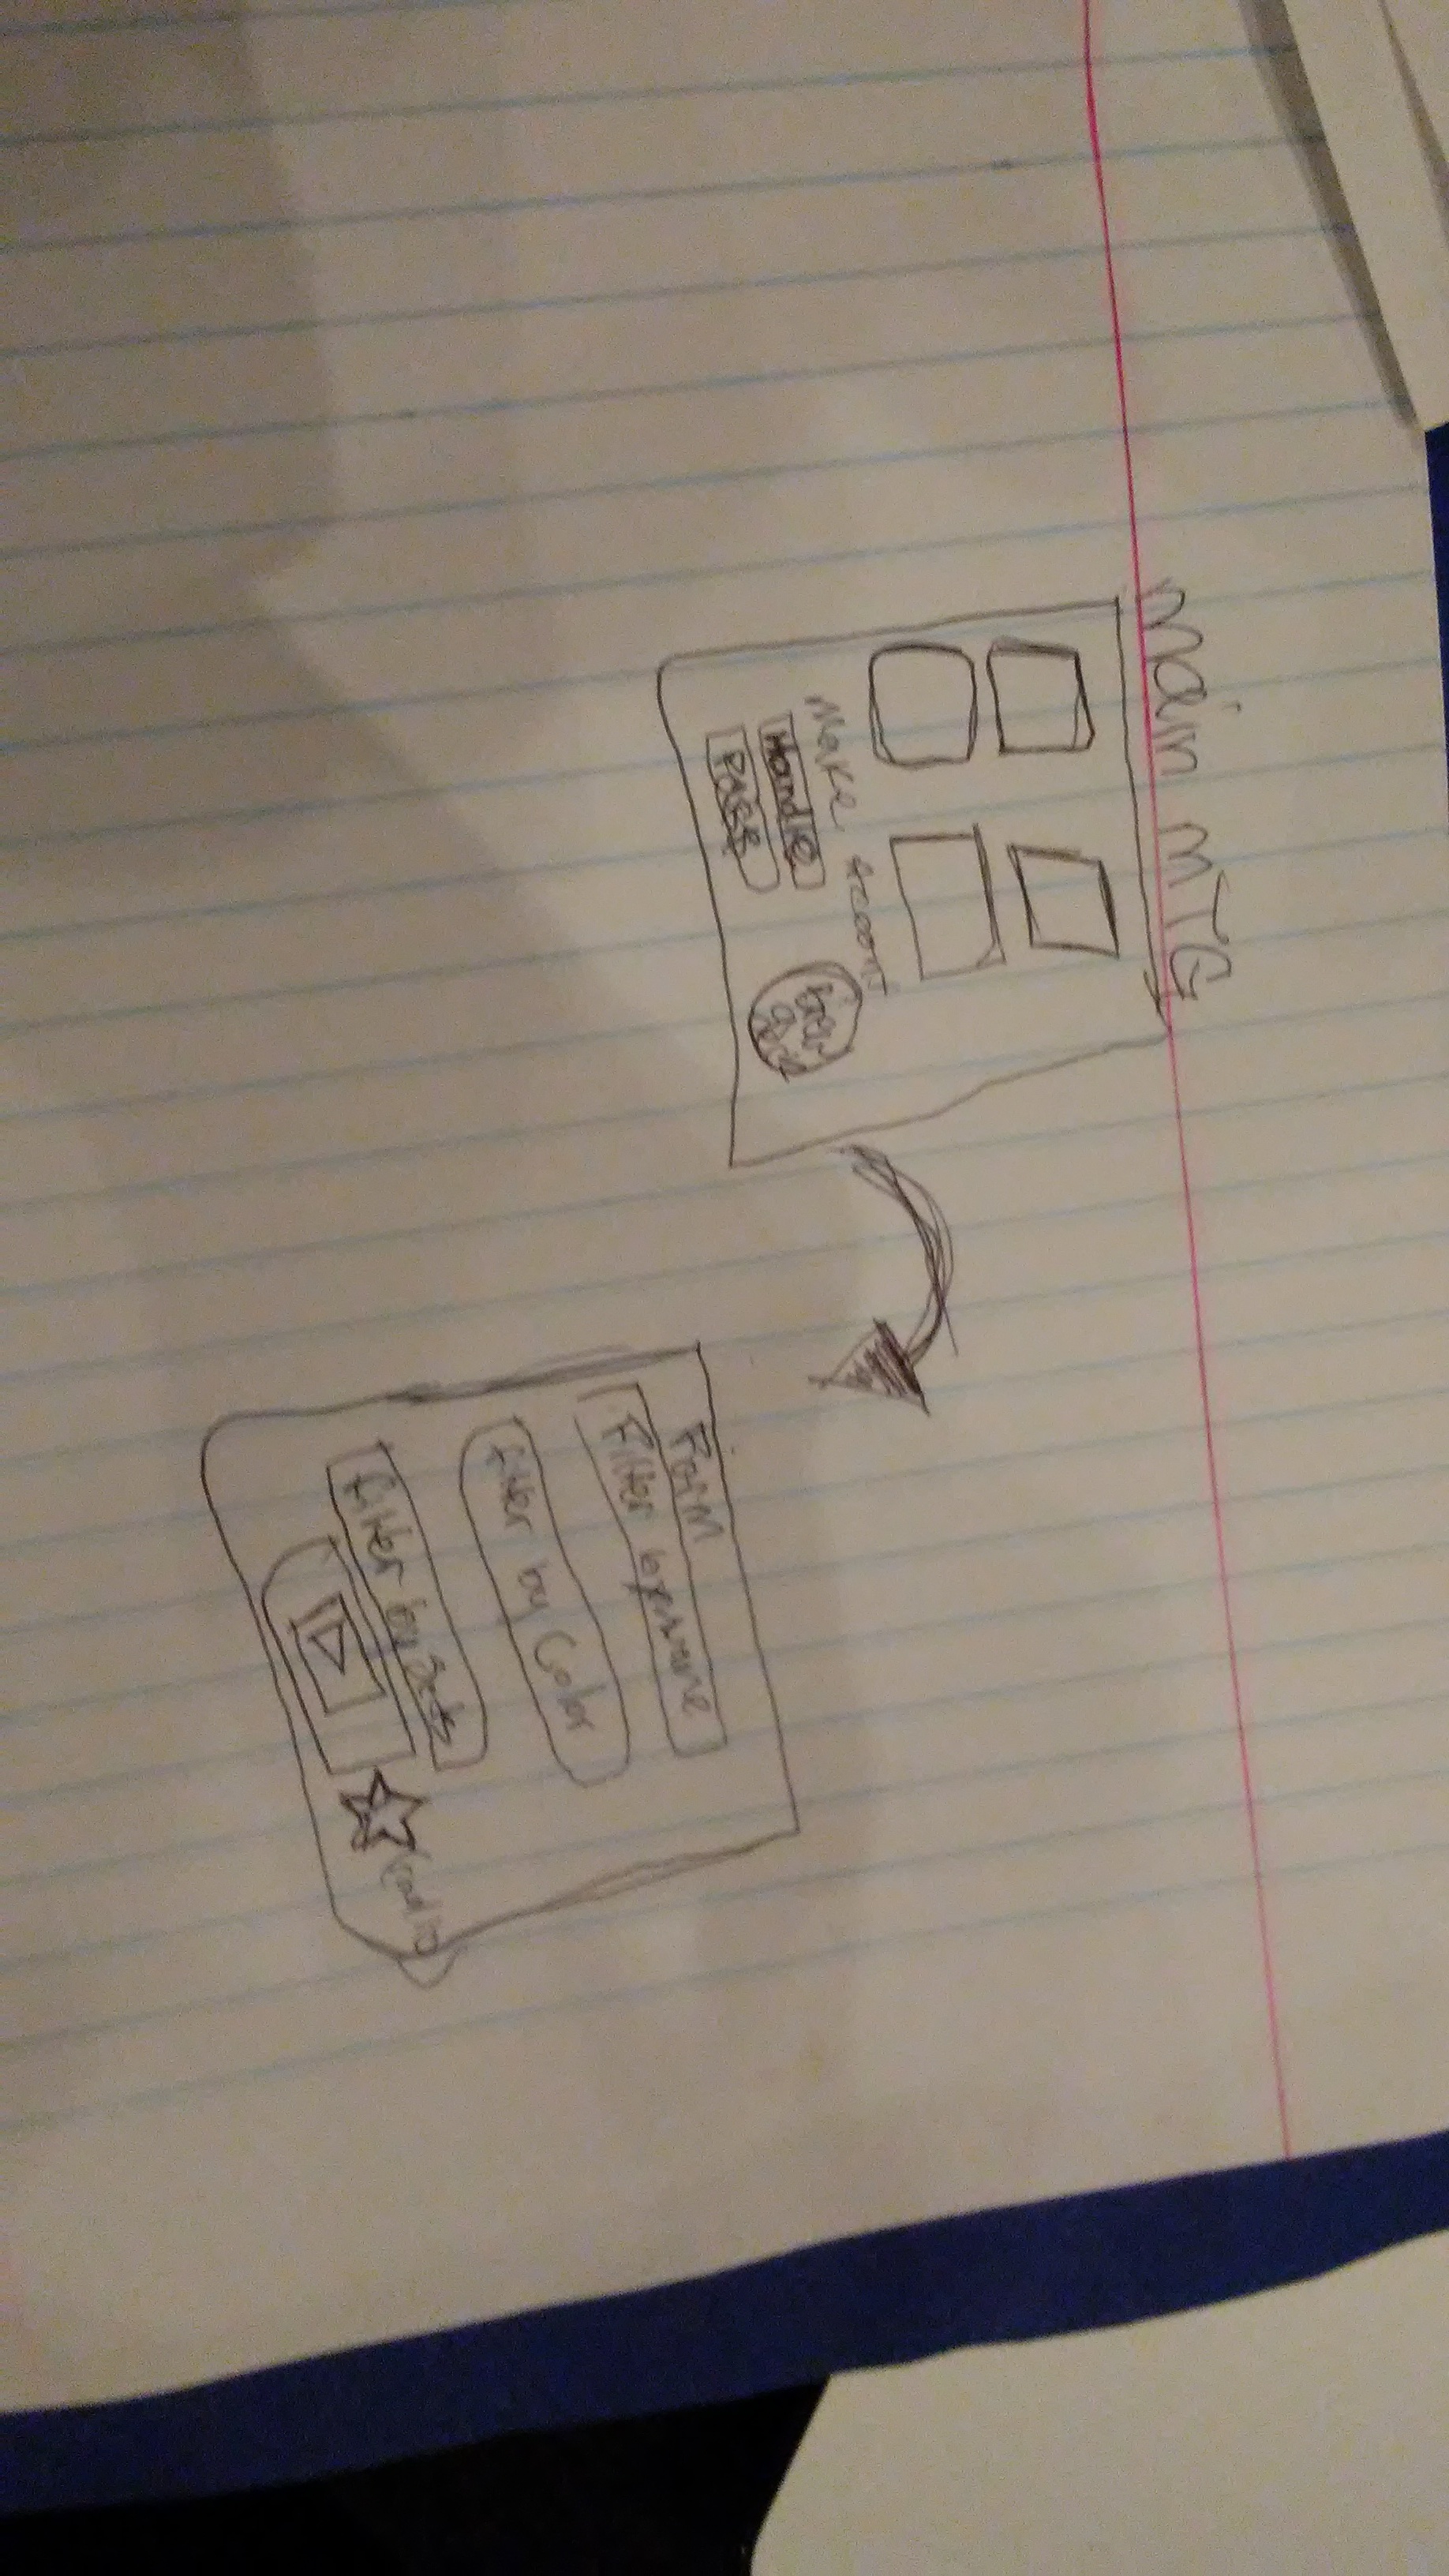 main MTG
Make Account
Handle
PASS
Form
Filter by name
filter by Color
filter by Sets